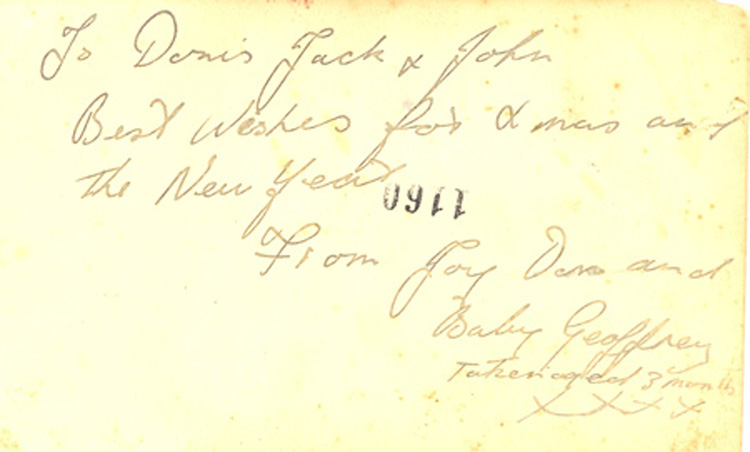 To Doris Jack & John
Best Wishes for Xmas and
the New Year
1160
From Joy Don and
Baby Geoffrey
Taken aged 3 months
XXXX